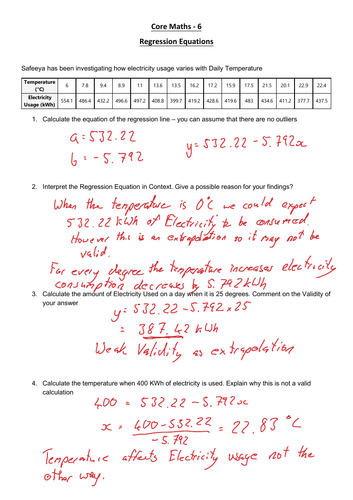 Core Maths - 6
Regression Equations
Safeeya has been investigating how electricity usage varies with Daily Temperature
Temperature (°C) 6 7.8 9.4 8.9 11 13.6 13.5 16.2 17.2 15.9 17.5 21.5 20.1 22.9 22.4
Electricity Usage (kWh) 554.1 486.4 432.2 496.6 497.2 408.8 399.7 419.2 428.6 419.6 483 434.6 411.2 377.7 437.5
1. Calculate the equation of the regression line – you can assume that there are no outliers
a = 532.22
b = -5.792
y = 532.22 - 5.792x
2. Interpret the Regression Equation in Context. Give a possible reason for your findings?
When the temperature is 0°c we could expect
532.22 kWh of Electricity to be consumed
However this is an extrapolation so it may not be
valid.
For every degree the temperature increases electricity
consumption decreases by 5.792kWh
3. Calculate the amount of Electricity Used on a day when it is 25 degrees. Comment on the Validity of
your answer
y = 532.22 - 5.792 x 25
= 387.42 kWh
Weak Validity as extrapolation
4. Calculate the temperature when 400 KWh of electricity is used. Explain why this is not a valid
calculation
400 = 532.22 - 5.792x
x = 400 - 532.22 / -5.792 = 22.83 °C
Temperature affects Electricity usage not the
other way.